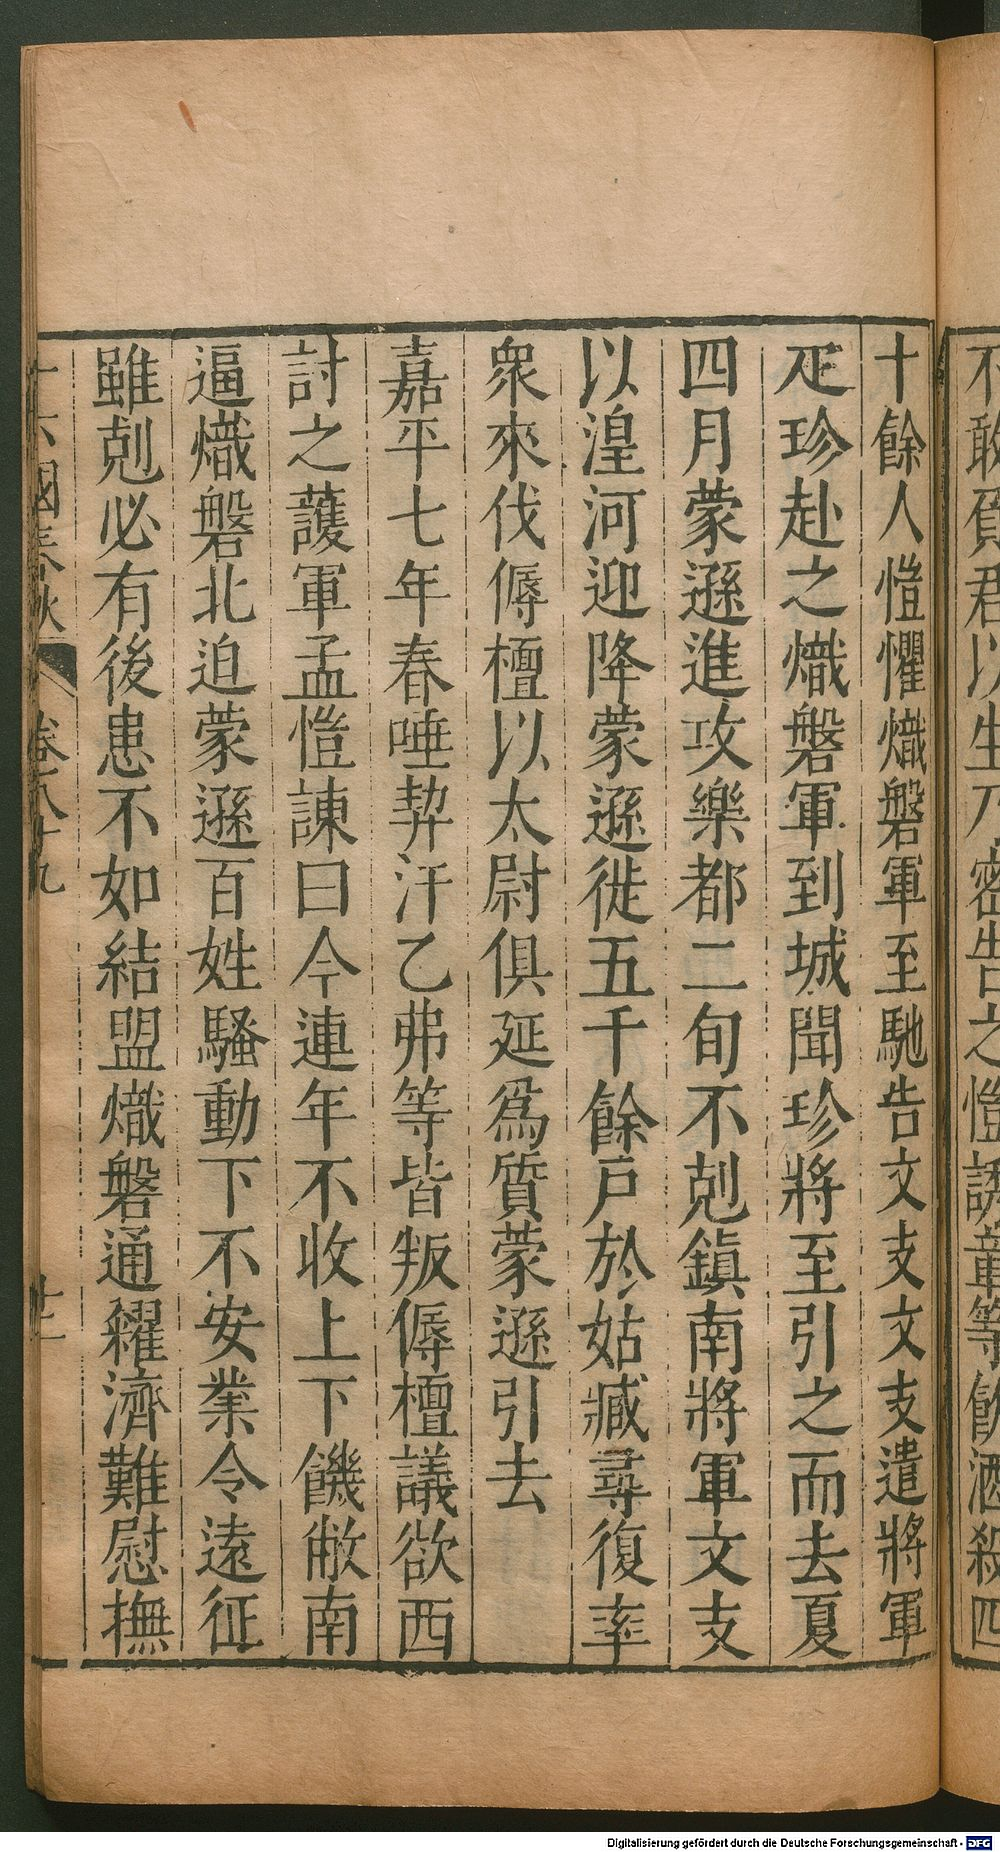 不敢負君以生乃密告之愷誘章等飲酒殺四
十餘人愷懼熾磐軍至馳告文支文支遣將軍
疋珍赴之熾磐軍到城聞珍將至引之而去夏
四月蒙遜進攻樂都二旬不剋鎮南將軍文支
以湟河迎降蒙遜徙五千餘戶於姑臧尋復率
衆來伐傉檀以太尉俱延爲質蒙遜引去
嘉平七年春唾契汗乙弗等皆叛傉檀議欲西
討之護軍孟愷諫曰今連年不收上下饑敝南
逼熾磐北迫蒙遜百姓騷動下不安業令遠征
雖剋必有後患不如結盟熾磐通糴濟難慰撫
十六國春秋 卷八十九 廿二
Digitalisierung gefördert durch die Deutsche Forschungsgemeinschaft - DFG